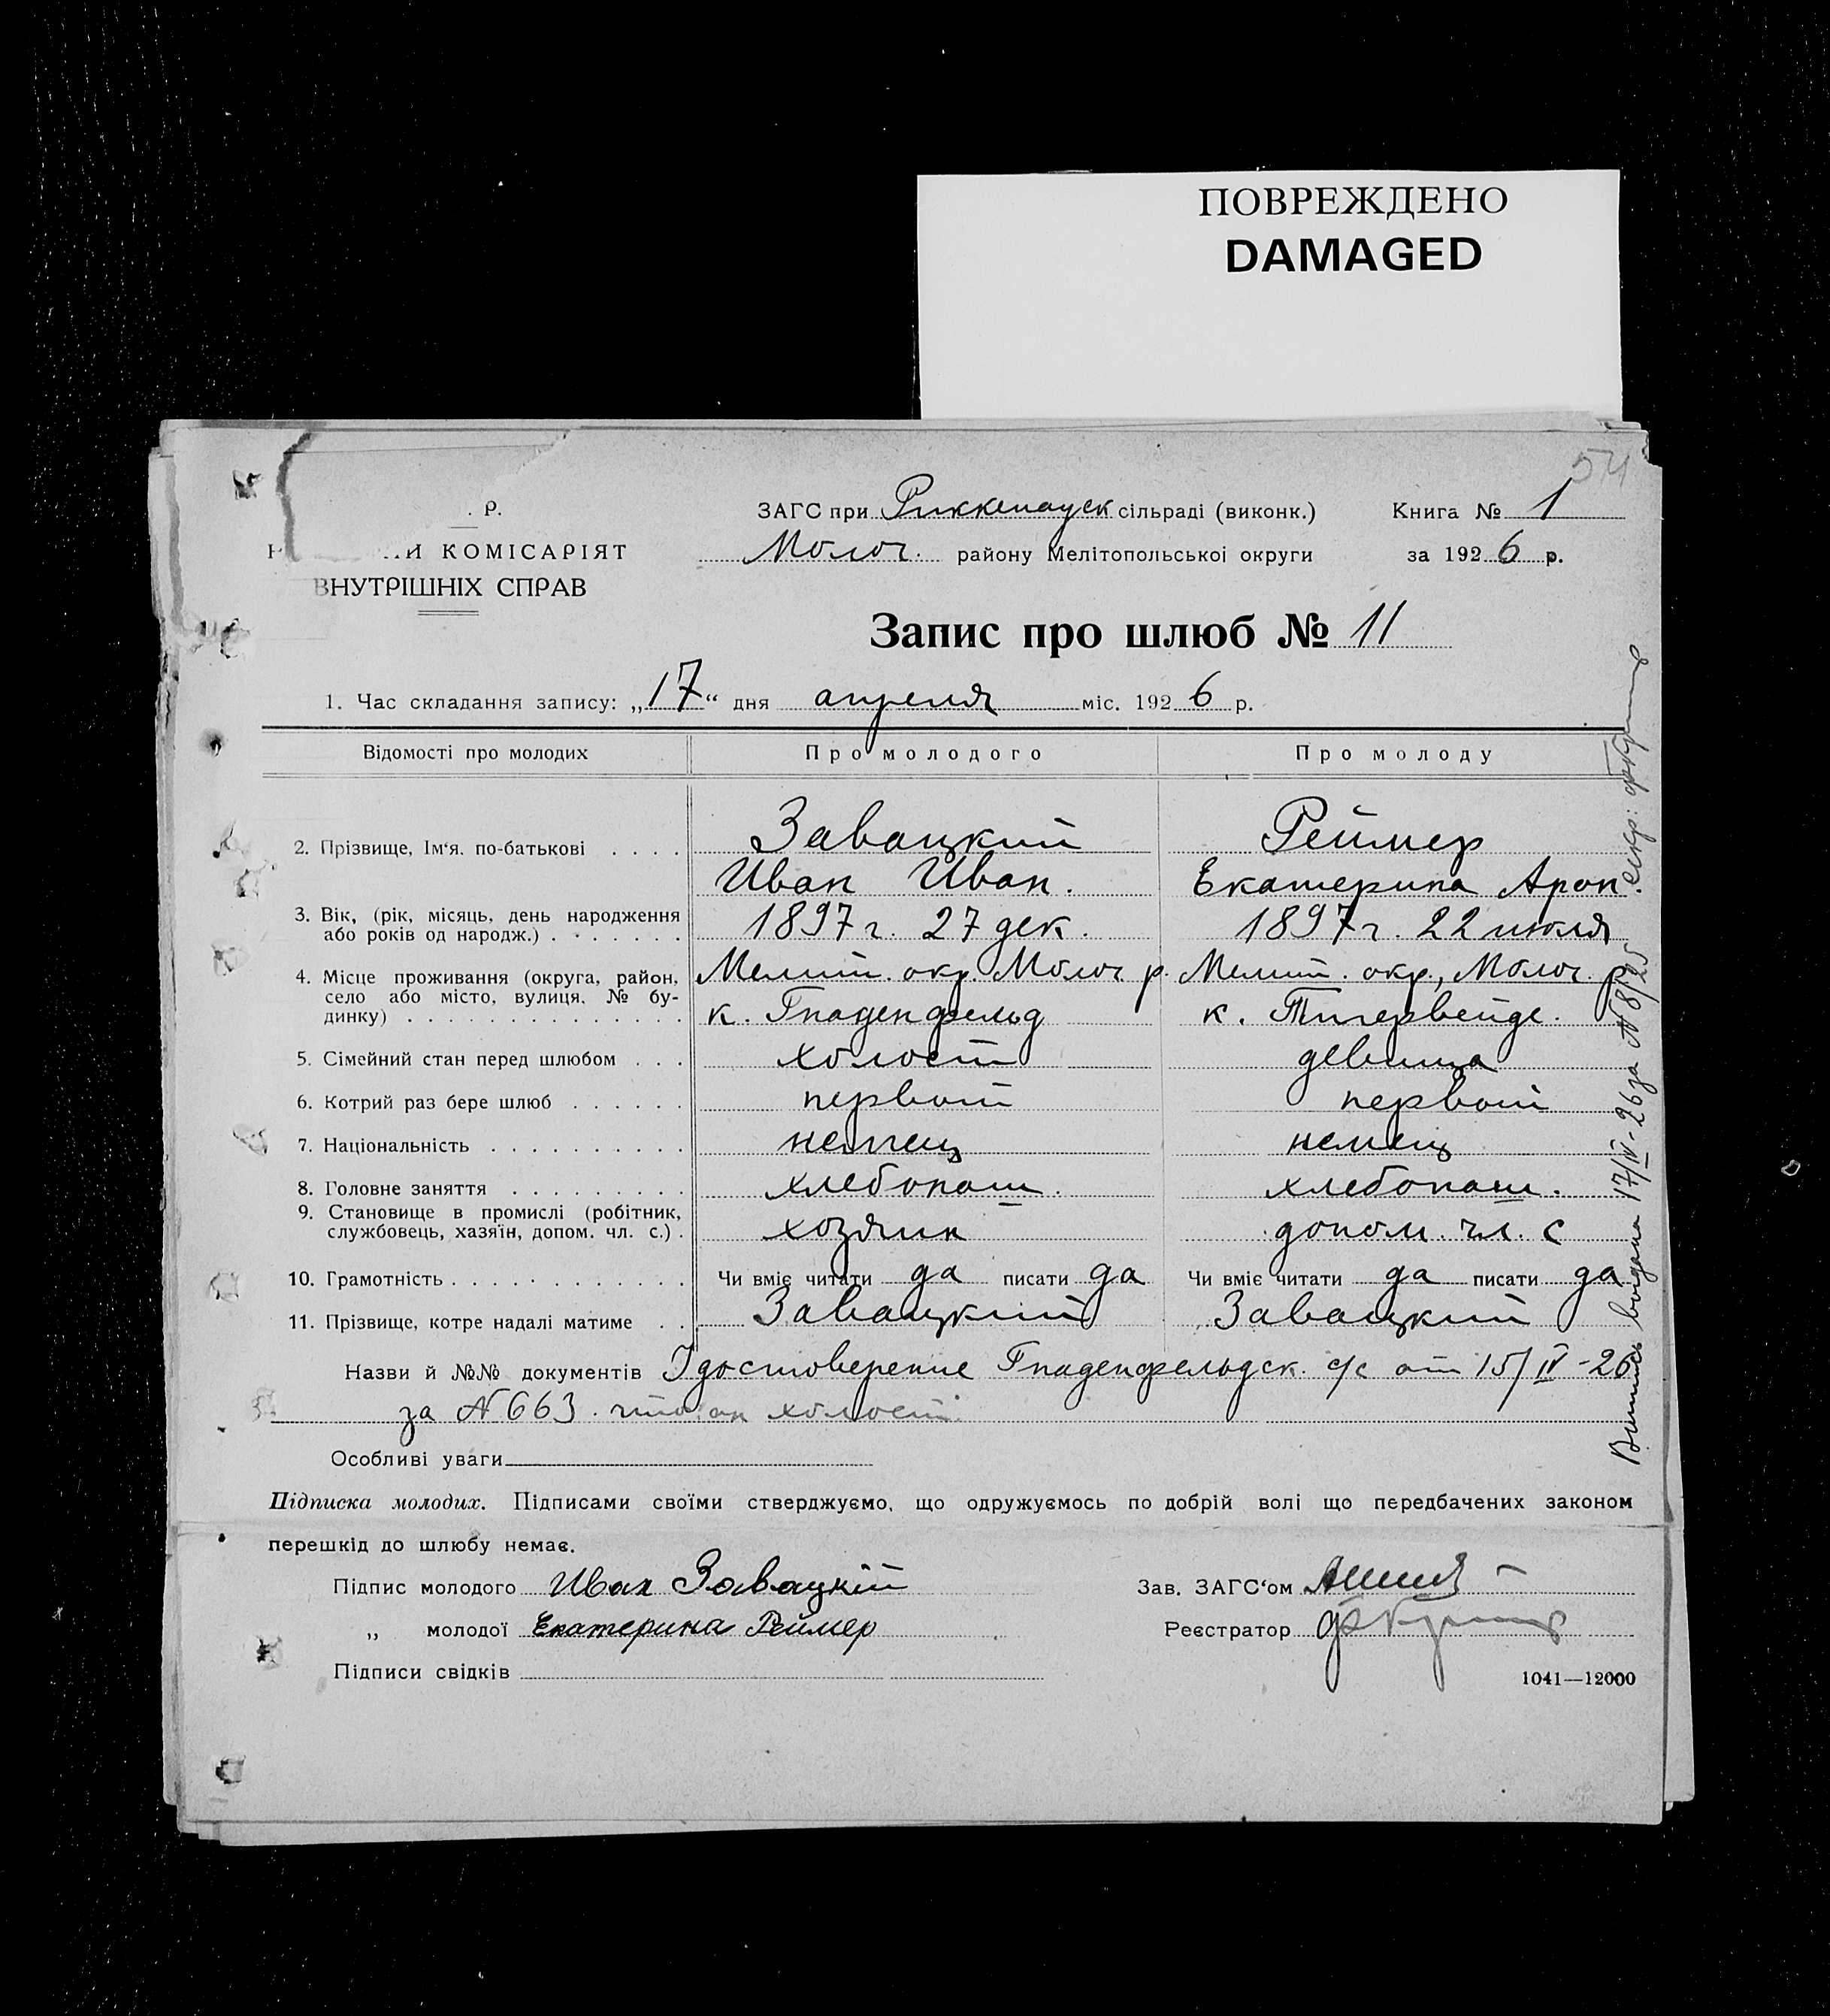 ПОВРЕЖДЕНО
DAMAGED
54
. Р.
ЗАГС при Риккенауск сільраді (виконк.)
Книга № 1
КОМІСАРІЯТ
Молоч. району Мелітопольської округи
за 1926 р.
ВНУТРІШНІХ СПРАВ
Запис про шлюб № 11
1. Час складання запису: „17“ дня апреля міс. 1926 р.
Відомості про молодих
Про молодого
Про молоду
2. Прізвище, Ім‘я, по-батькові . . . .
Завацкий
Реймер
Иван Иван.
Екатерина Арон.
3. Вік, (рік, місяць, день народження
або років од народж.) . . . . . . .
1897 г. 27 дек.
1897 г. 22 июля
4. Місце проживання (округа, район,
село або місто, вулиця, № бу-
динку) . . . . . . . . . . . . . .
Мелит. окр. Молоч р.
Мелит. окр., Молоч. р
к. Гнаденфельд
к. Тигервейде.
5. Сімейний стан перед шлюбом . . .
холост
девица
6. Котрий раз бере шлюб . . . . . .
первый
первый
7. Національність . . . . . . . . . .
немец
немец
8. Головне заняття . . . . . . . . .
хлебопаш.
хлебопаш.
9. Становище в промислі (робітник,
службовець, хазяїн, допом. чл. с.) .
хозяин
допом. чл. с
10. Грамотність . . . . . . . . . . . .
Чи вміє читати да писати да
Чи вміє читати да писати да
11. Прізвище, котре надалі матиме . .
Завацкий
Завацкий
Назви й №№ документів Удостоверение Гнаденфельдск. с/с от 15/IV-26
за № 663. что он холост.
Особливі уваги
Підписка молодих. Підписами своїми стверджуємо, що одружуємось по добрій волі що передбачених законом
перешкід до шлюбу немає.
Підпис молодого Иван Завацкій
Зав. ЗАГС‘ом
„ молодої Екатерина Реймер
Реєстратор
Підписи свідків
1041—12000
Выпись выдана 17/IV-26 за № 8/25 секр: